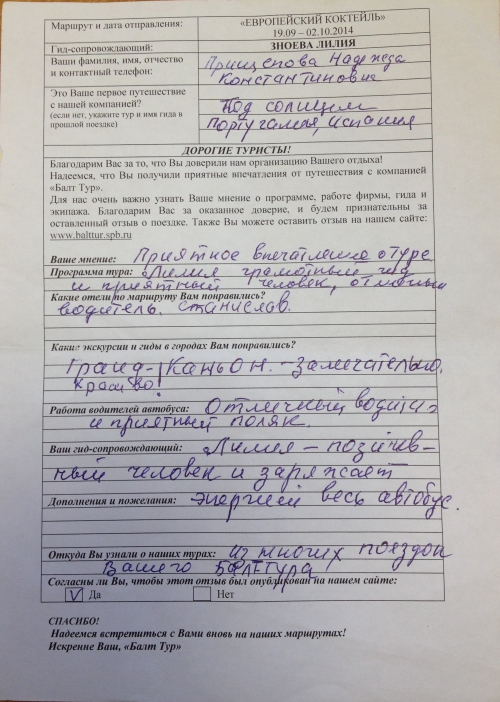 Маршрут и дата отправления: «ЕВРОПЕЙСКИЙ КОКТЕЙЛЬ»
19.09 – 02.10.2014
Гид-сопровождающий: ЗНОЕВА ЛИЛИЯ
Ваши фамилия, имя, отчество и контактный телефон: Прищепова Надежда
Константиновна
Это Ваше первое путешествие с нашей компанией?
(если нет, укажите тур и имя гида в прошлой поездке)
Под солнцем
Португалия, Испания
ДОРОГИЕ ТУРИСТЫ!
Благодарим Вас за то, что Вы доверили нам организацию Вашего отдыха!
Надеемся, что Вы получили приятные впечатления от путешествия с компанией
«Балт Тур».
Для нас очень важно узнать Ваше мнение о программе, работе фирмы, гида и
экипажа. Благодарим Вас за оказанное доверие, и будем признательны за
оставленный отзыв о поездке. Также Вы можете оставить отзыв на нашем сайте:
www.balttur.spb.ru
Ваше мнение: Приятное впечатление о туре
Программа тура: Лилия грамотный гид
и приятный человек, отличный
Какие отели по маршруту Вам понравились?
водитель. Станислав.
Какие экскурсии и гиды в городах Вам понравились?
Гранд-Каньон. - замечательно,
красиво!
Работа водителей автобуса: Отличный водитель
и приятный поляк.
Ваш гид-сопровождающий: Лилия – позитив-
ный человек и заряжает
Дополнения и пожелания: энергией весь автобус.
Откуда Вы узнали о наших турах: из многих поездок
Вашего БАЛТТУРА
Согласны ли Вы, чтобы этот отзыв был опубликован на нашем сайте:
V Да Нет
СПАСИБО!
Надеемся встретиться с Вами вновь на наших маршрутах!
Искренне Ваш, «Балт Тур»